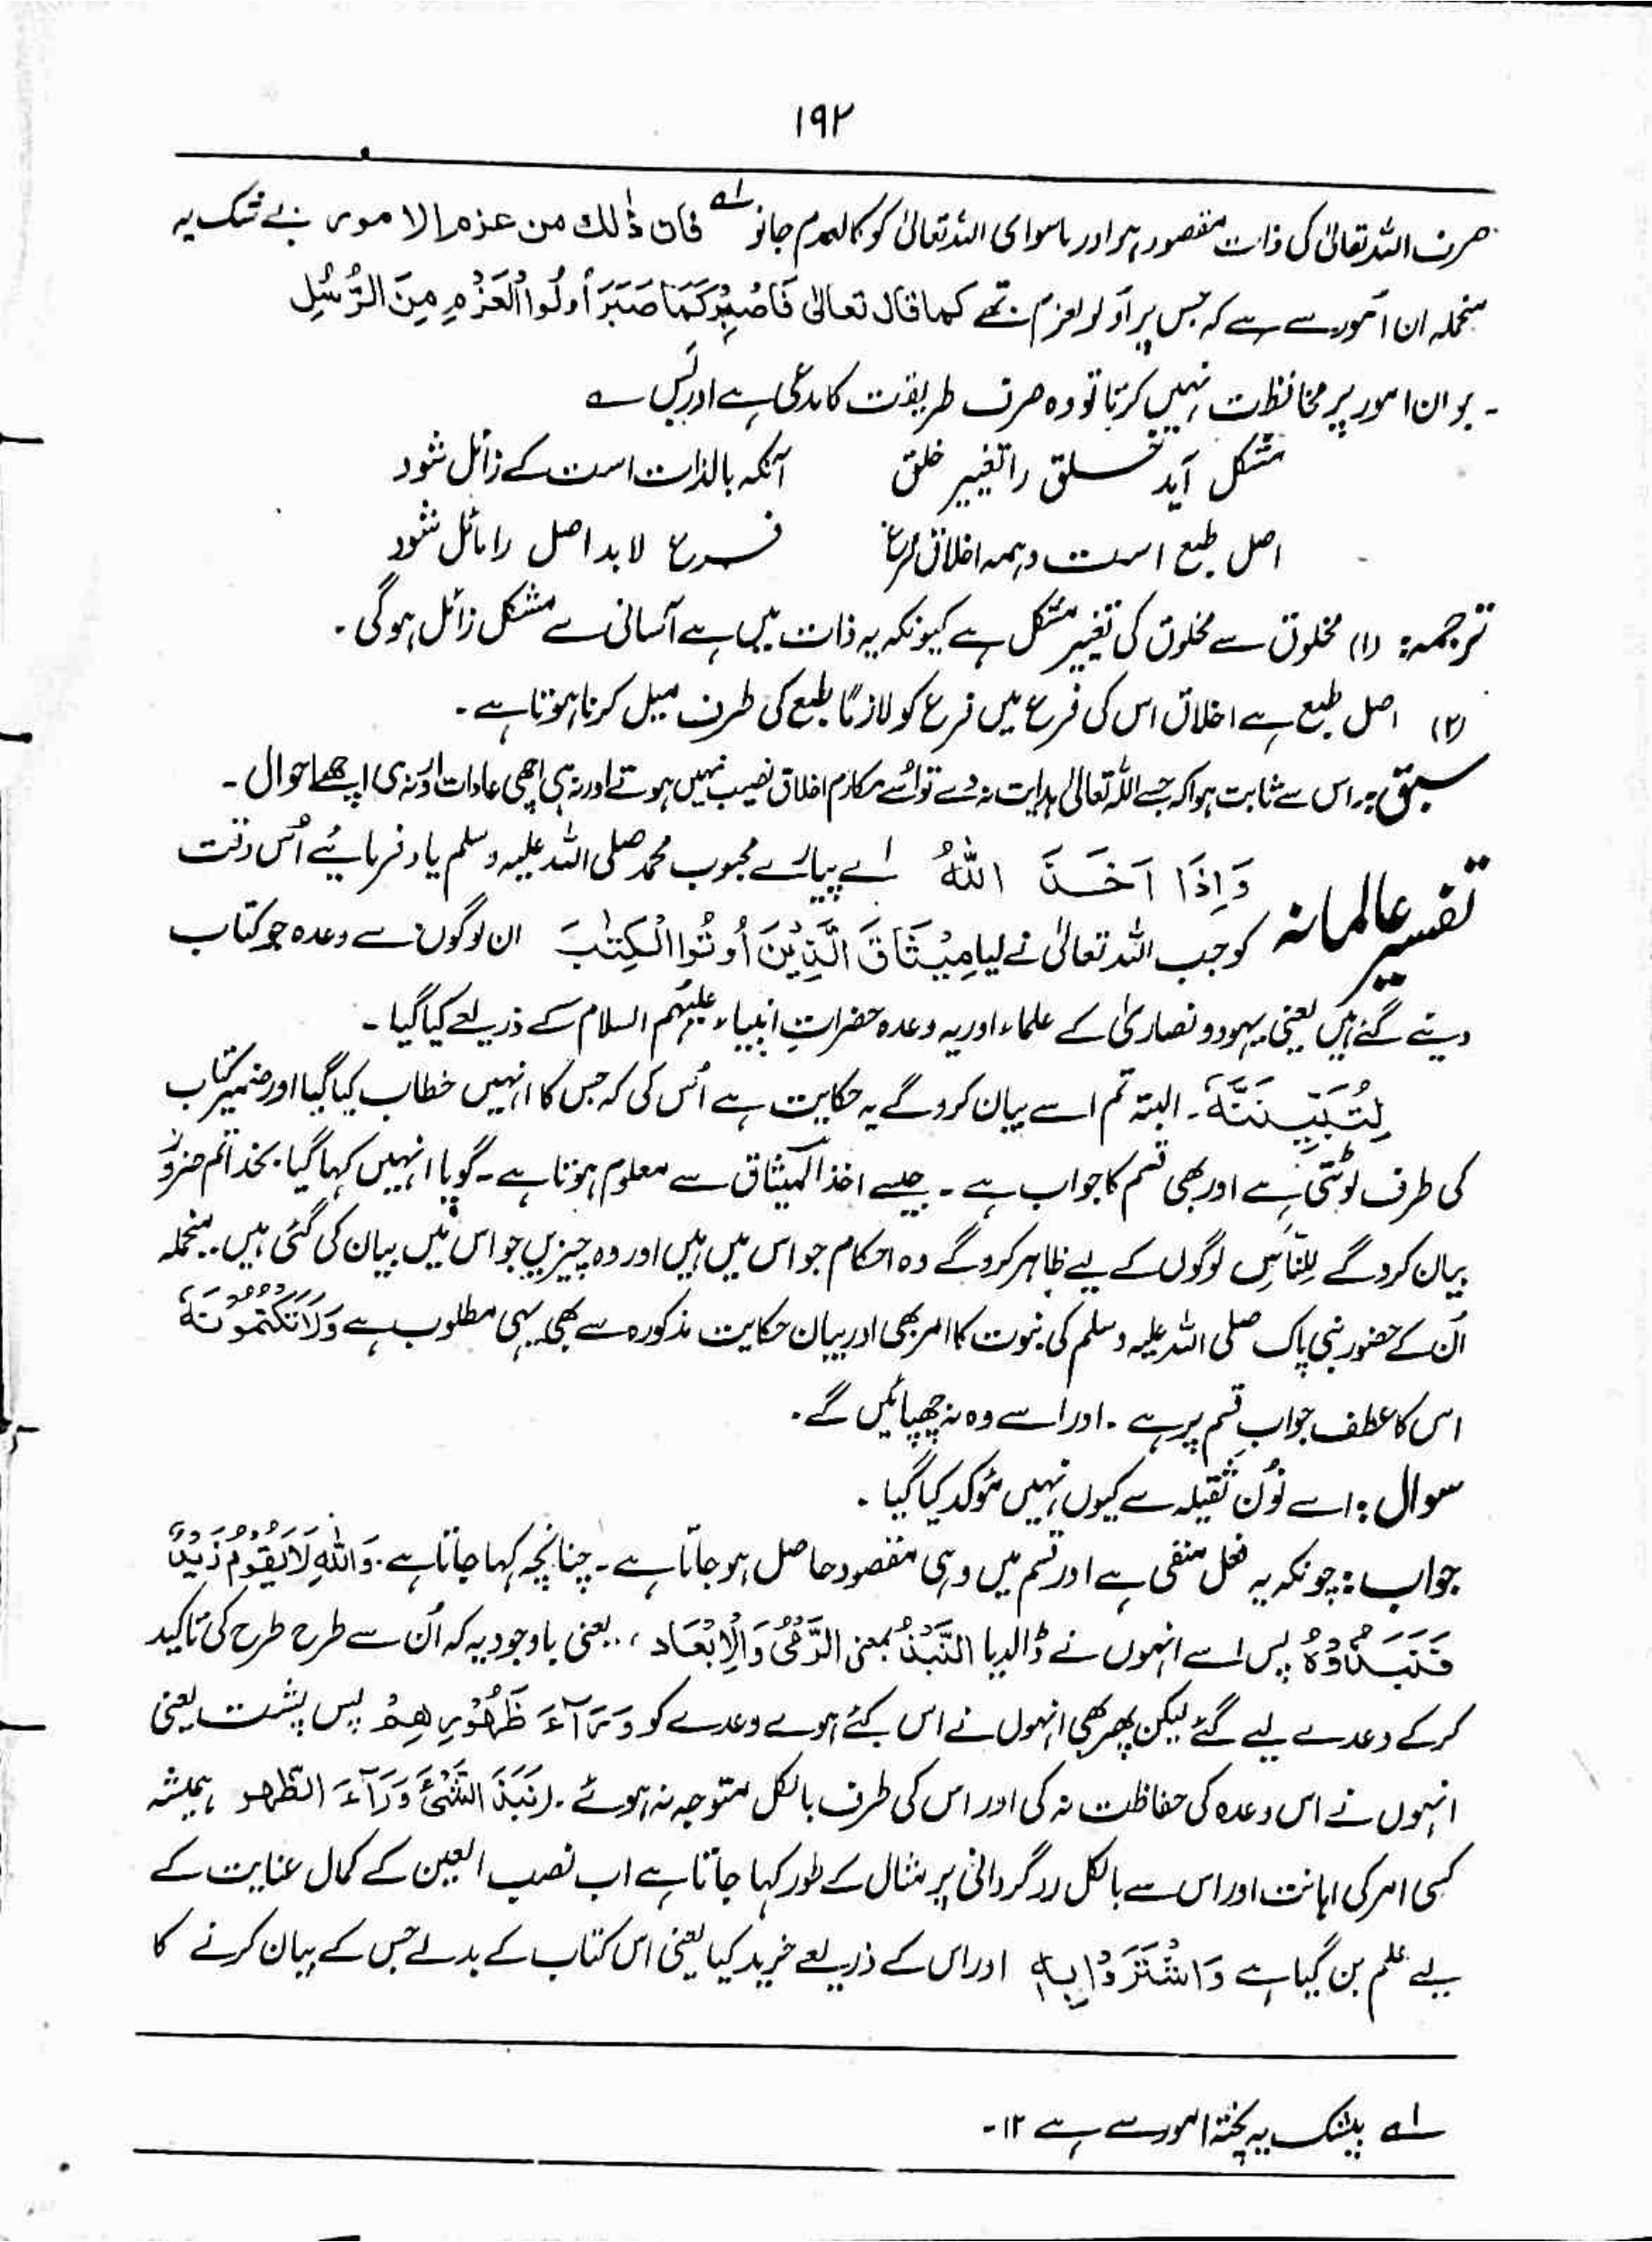 ۱۹۲
صرف اللہ تعالیٰ کی ذات مقصود ہو اور ماسوای اللہ تعالیٰ کو کالعدم جانو لہ فان ذٰلك من عزم الامور بے شک یہ
منجملہ ان اُمور سے ہے کہ جس پر اُولوالعزم تھے کما قال تعالیٰ فَاصْبِرْ كَمَا صَبَرَ أُولُوا الْعَزْمِ مِنَ الرُّسُلِ
۔ جو ان امور پر محافظت نہیں کرتا تو وہ صرف طریقت کا مدعی ہے اور بس ؎
مشکل آید خلق را تغییر خلق آنکہ بالذات است کے زائل شود
اصل طبع است و ہمہ اخلاق فرع فرع لا بد اصل را مائل شود
ترجمہ: (۱) مخلوق سے مخلوق کی تغییر مشکل ہے کیونکہ یہ ذات میں ہے آسانی سے مشکل زائل ہوگی ۔
(۲) اصل طبع ہے اخلاق اس کی فرع میں فرع کو لازمًا طبع کی طرف میل کرنا ہوتا ہے ۔
سبق :۔ اس سے ثابت ہوا کہ جسے اللہ تعالیٰ ہدایت نہ دے تو اُسے مکارم اخلاق نصیب نہیں ہوتے اور نہ ہی اچھی عادات اور نہ ہی اچھے احوال ۔
تفسیر عالمانہ وَاِذَا اَخَذَ اللهُ اے پیارے محبوب محمد صلی اللہ علیہ وسلم یاد فرمائیے اُس وقت
کو جب اللہ تعالیٰ نے لیا مِيْثَاقَ الَّذِيْنَ أُوتُوا الْكِتٰبَ ان لوگوں سے وعدہ جو کتاب
دیئے گئے ہیں یعنی یہود و نصاریٰ کے علماء اور یہ وعدہ حضراتِ انبیاء علیہم السلام کے ذریعے کیا گیا ۔
لِتُبَيِّنَنَّهٗ ۔ البتہ تم اسے بیان کرو گے یہ حکایت ہے اُس کی کہ جس کا انہیں خطاب کیا گیا اور ضمیر کتاب
کی طرف لوٹتی ہے اور بھی قسم کا جواب ہے ۔ جیسے اخذ المیثاق سے معلوم ہوتا ہے ۔ گویا انہیں کہا گیا بخدا تم ضرور
بیان کرو گے لِلنَّاسِ لوگوں کے لیے ظاہر کرو گے وہ احکام جو اس میں ہیں اور وہ چیزیں جو اس میں بیان کی گئی ہیں ۔ منجملہ
اُن کے حضور نبی پاک صلی اللہ علیہ وسلم کی نبوت کا امر بھی اور بیان حکایت مذکورہ سے بھی یہی مطلوب ہے وَلَا تَكْتُمُوْنَهٗ
اس کا عطف جوابِ قسم پر ہے ۔ اور اسے وہ نہ چھپائیں گے ۔
سوال : اسے نُون ثقیلہ سے کیوں نہیں مؤکد کیا گیا ۔
جواب : چونکہ یہ فعل منفی ہے اور قسم میں وہی مقصود حاصل ہو جاتا ہے ۔ چنانچہ کہا جاتا ہے ۔ وَاللهِ لَا يَقُوْمُ زَيْدٌ
فَنَبَذُوْهُ پس اسے انہوں نے ڈالدیا النَّبْذُ بمعنی الرَّمْیُ وَالْاِبْعَاد ، یعنی باوجودیہ کہ اُن سے طرح طرح کی تاکید
کرکے وعدے لیے گئے لیکن پھر بھی انہوں نے اس کئے ہوے وعدے کو وَرَآءَ ظُهُوْرِهِمْ پس پشت یعنی
انہوں نے اس وعدہ کی حفاظت نہ کی اور اس کی طرف بالکل متوجہ نہ ہوئے ۔ (نَبَذَ الشَّیْءَ وَرَآءَ الظهر ہمیشہ
کسی امر کی اہانت اور اس سے بالکل ردگردانی پر مثال کے طور کہا جاتا ہے اب نصب العین کے کمال عنایت کے
لیے علم بن گیا ہے وَاشْتَرَوْا بِهٖ اور اس کے ذریعے خرید کیا یعنی اس کتاب کے بدلے جس کے بیان کرنے کا
لہ بیشک یہ پختہ امور سے ہے ۱۲ ۔